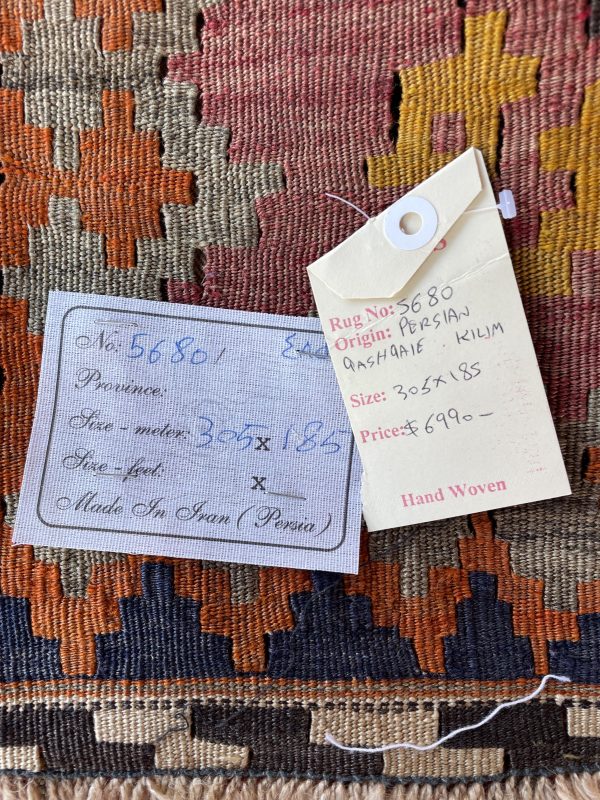 No: 5680/
Province:
Size - meter: 305 x 185
Size - feet: x
Made In Iran (Persia)
Rug No: 5680
Origin: PERSIAN
QASHQAIE KILIM
Size: 305 x 185
Price: $6990-
Hand Woven